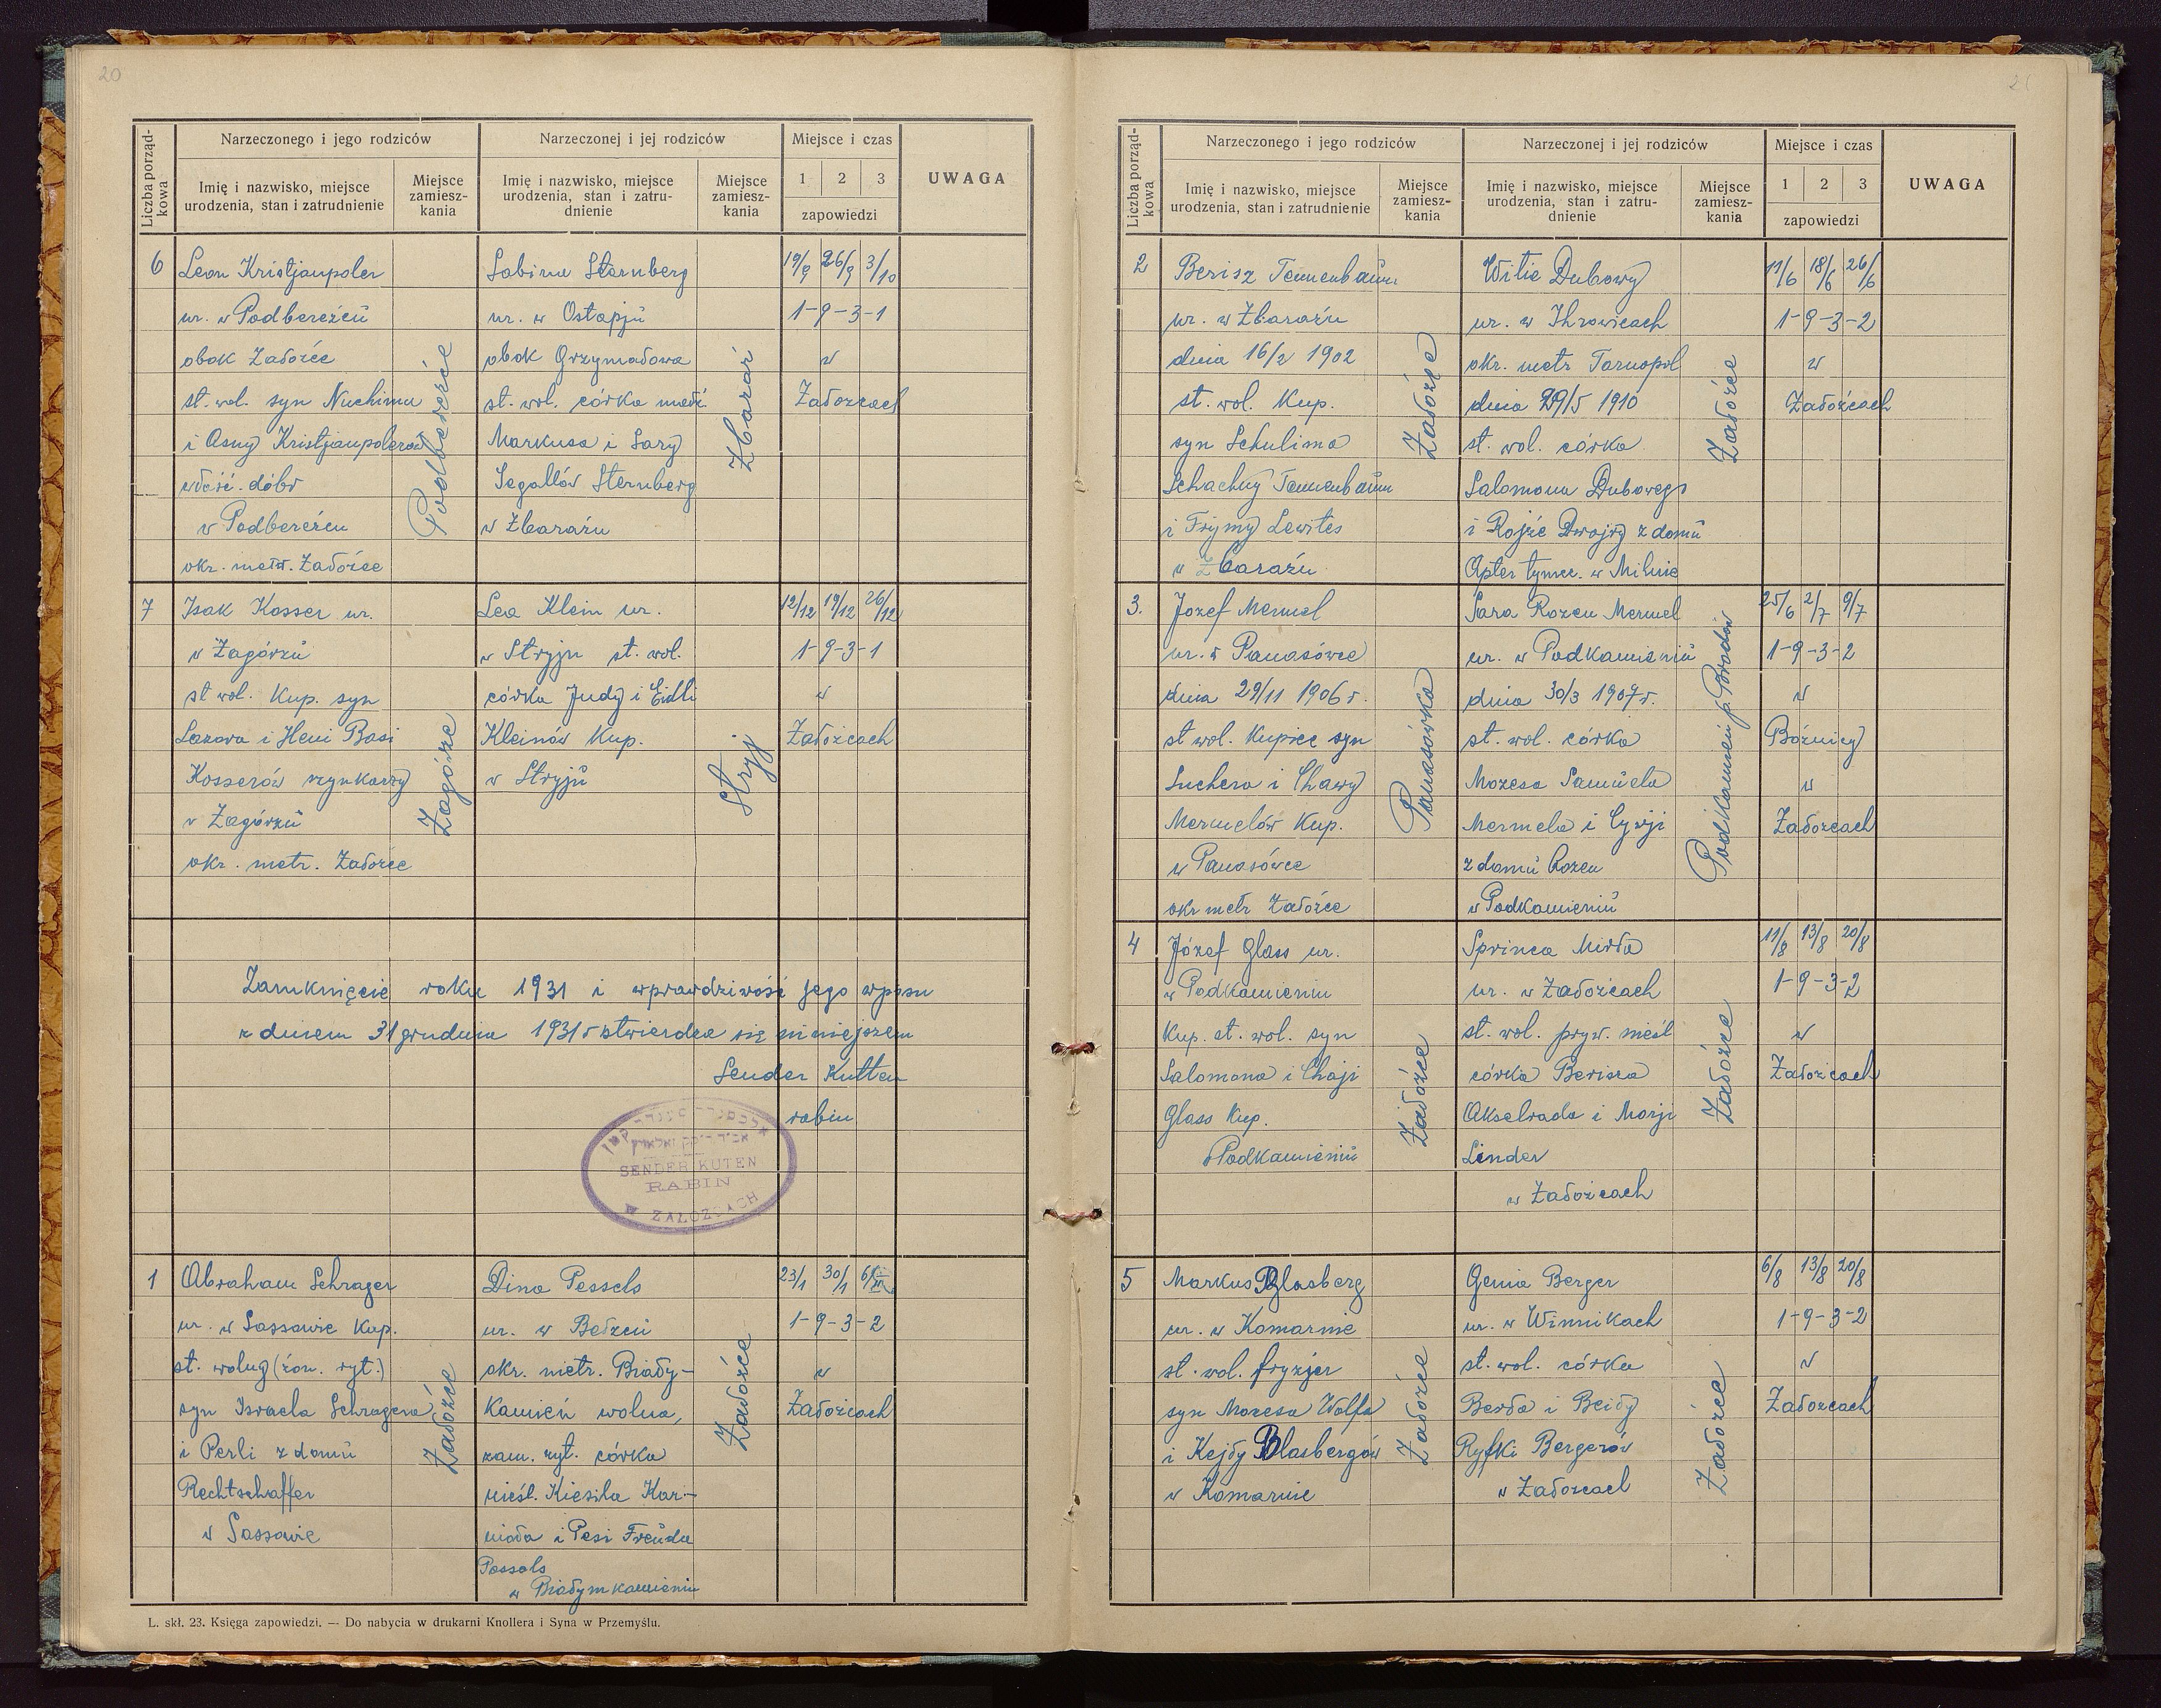 20
Liczba porząd-
kowa
Narzeczonego i jego rodziców
Narzeczonej i jej rodziców
Miejsce i czas
Imię i nazwisko, miejsce
urodzenia, stan i zatrudnienie
Miejsce
zamiesz-
kania
Imię i nazwisko, miejsce
urodzenia, stan i zatru-
dnienie
Miejsce
zamiesz-
kania
1 2 3
zapowiedzi
UWAGA
6
Leon Kristjanpoler
ur. w Podbereźcŭ
obok Założce
st. wol. syn Nuchima
i Asny Kristjanpolerów
właśc. dóbr
w Podbereźcu
okr. metr. Założce
Podbereźce
Sabina Sternberg
ur. w Ostapjŭ
obok Grzymałowa
st. wol. córka
Markusa i Sary
Segallów Sternberg
w Zbarażu
Zbaraż
19/9 26/9 3/10
1-9-3-1
w
Założcach
7
Isak Kosser ur.
w Zagórzŭ
st wol. Kup. syn
Lazara i Heni Basi
Kosserów szynkarzy
w Zagórzŭ
okr. metr. Założce
Zagórze
Lea Klein ur.
w Stryju st. wol.
córka Judy i Eidli
Kleinów Kup.
w Stryjŭ
Stryj
12/12 19/12 26/12
1-9-3-1
w
Założcach
Zamknięcie roku 1931 i wprawdziwość jego wpisu
z dniem 31 grudnia 1931 r stwierdza się niniejszem
Sender Kutten
rabin
SENDER KUTEN
RABIN
W ZAŁOZCACH
1
Abraham Schrager
ur. w Sassowie Kup.
st. wolny (żon. ryt.)
syn Israela Schragera
i Perli z domŭ
Rechtschaffer
w Sassowie
Założce
Dina Pessels
ur. w Bełzcŭ
okr. metr. Biały-
Kamień wolna,
zam. ryt. córka
nieśl. Kiesila Kar-
nioła i Pesi Freŭda
Possols
w Białymkamieniu
Założce
23/1 30/1
1-9-3-2
w
Założcach
L. skł. 23. Księga zapowiedzi. — Do nabycia w drukarni Knollera i Syna w Przemyślu.
21
Liczba porząd-
kowa
Narzeczonego i jego rodziców
Narzeczonej i jej rodziców
Miejsce i czas
Imię i nazwisko, miejsce
urodzenia, stan i zatrudnienie
Miejsce
zamiesz-
kania
Imię i nazwisko, miejsce
urodzenia, stan i zatru-
dnienie
Miejsce
zamiesz-
kania
1 2 3
zapowiedzi
UWAGA
2
Berisz Tennenbaŭm
ur. w Zbarażu
dnia 16/2 1902
st. wol. Kup.
syn Schulima
Schachny Tennenbaŭm
i Frymy Lewites
w Zbarażu
Założce
Witie Dubowy
ur. w Ihrowicach
okr. metr Tarnopol
dnia 29/5 1910
st. wol. córka
Salomona Dubowego
i Rojze Dwojry z domŭ
Apter tymcz. w Milnie
Założce
11/6 18/6 26/6
1-9-3-2
w
Założcach
3.
Jozef Mermel
ur. w Panasówce
dnia 29/11 1906 r.
st wol. Kupiec syn
Suchera i Chawy
Mermelów Kup.
w Panasówce
okr metr Założce
Panasówka
Sara Rozen Mermel
ur. w Podkamieniŭ
dnia 30/3 1907 r.
st. wol. córka
Mozesa Samŭela
Mermela i Cywji
z domŭ Rozen
w Podkamieniŭ
Podkamień p. Brodów
25/6 2/7 9/7
1-9-3-2
w
Bóżnicy
w
Założcach
4
Józef Glass ur.
w Podkamieniu
Kup. st. wol. syn
Salomona i Chaji
Glass Kup.
w Podkamieniŭ
Założce
Sprinca Mirla
ur. w Założcach
st. wol. pryw. nieśl
córka Berisza
Akselrada i Marji
Linder
w Założcach
Założce
11/8 13/8 20/8
1-9-3-2
w
Założcach
5
Markus Blasberg
ur. w Komarnie
st. wol. fryzjer
syn Mozesa Wolfa
i Kejły Blasbergów
w Komarnie
Założce
Genia Berger
ur. w Winnikach
st. wol. córka
Berła i Beiły
Ryfki Bergerów
w Założcach
Założce
6/8 13/8 20/8
1-9-3-2
w
Założcach